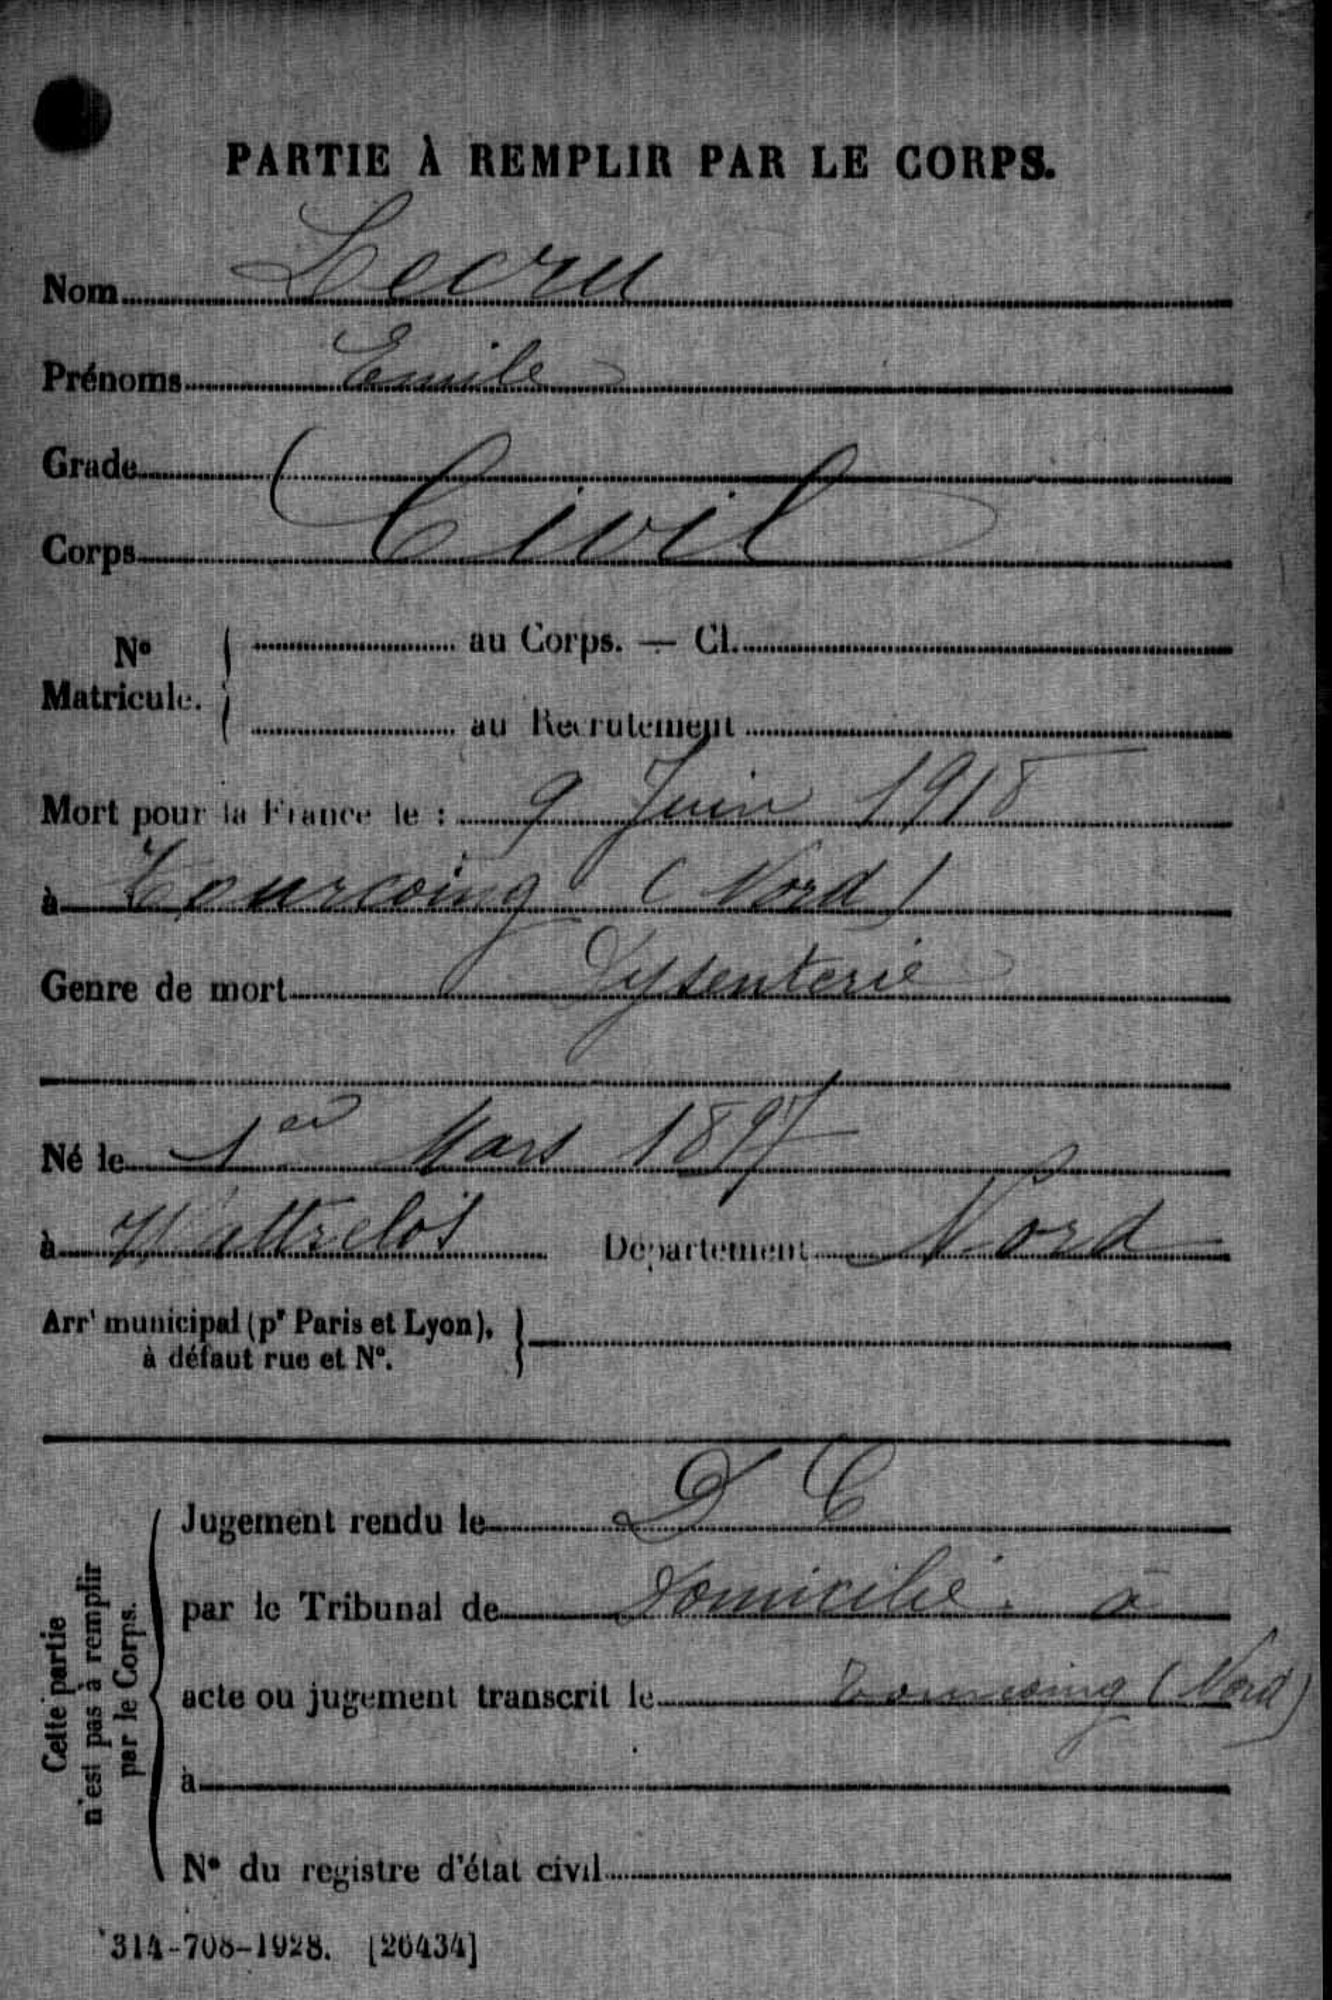 PARTIE À REMPLIR PAR LE CORPS.
Nom Lecru
Prénoms Emile
Grade
Corps Civil
N° Matricule. { au Corps. — Cl.
au Recrutement
Mort pour la France le : 9 Juin 1918
à Tourcoing (Nord)
Genre de mort Dysenterie
Né le 1er Mars 1897
à Wattrelos Département Nord
Arrt municipal (pr Paris et Lyon), }
à défaut rue et N°.
Jugement rendu le D C
par le Tribunal de Domicilié à
acte ou jugement transcrit le Tourcoing (Nord)
à
N° du registre d'état civil
Cette partie
n'est pas à remplir
par le Corps.
314-708-1928. [26434]